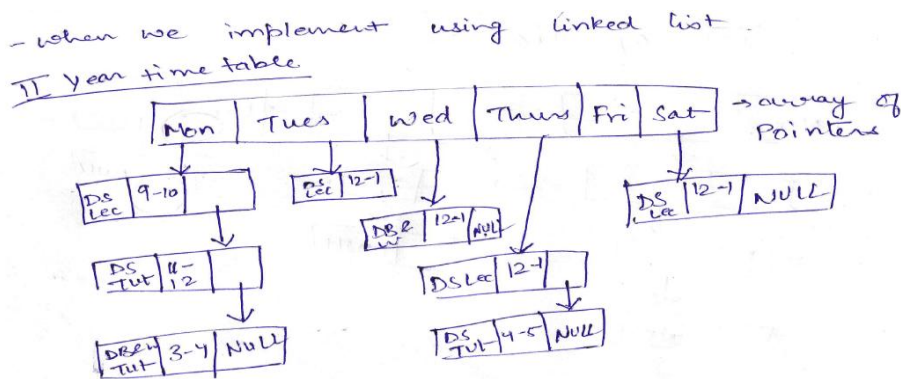 - when we implement using linked list.
II Year time table
Mon Tues Wed Thurs Fri Sat → array of
Pointers
DS Lec 9-10
DS Lec 12-1
DS Lec 12-1 NULL
12-1 NULL
DS Tut 11-12
DS Lec 12-1
Tut 3-4 NULL
DS Tut 4-5 NULL